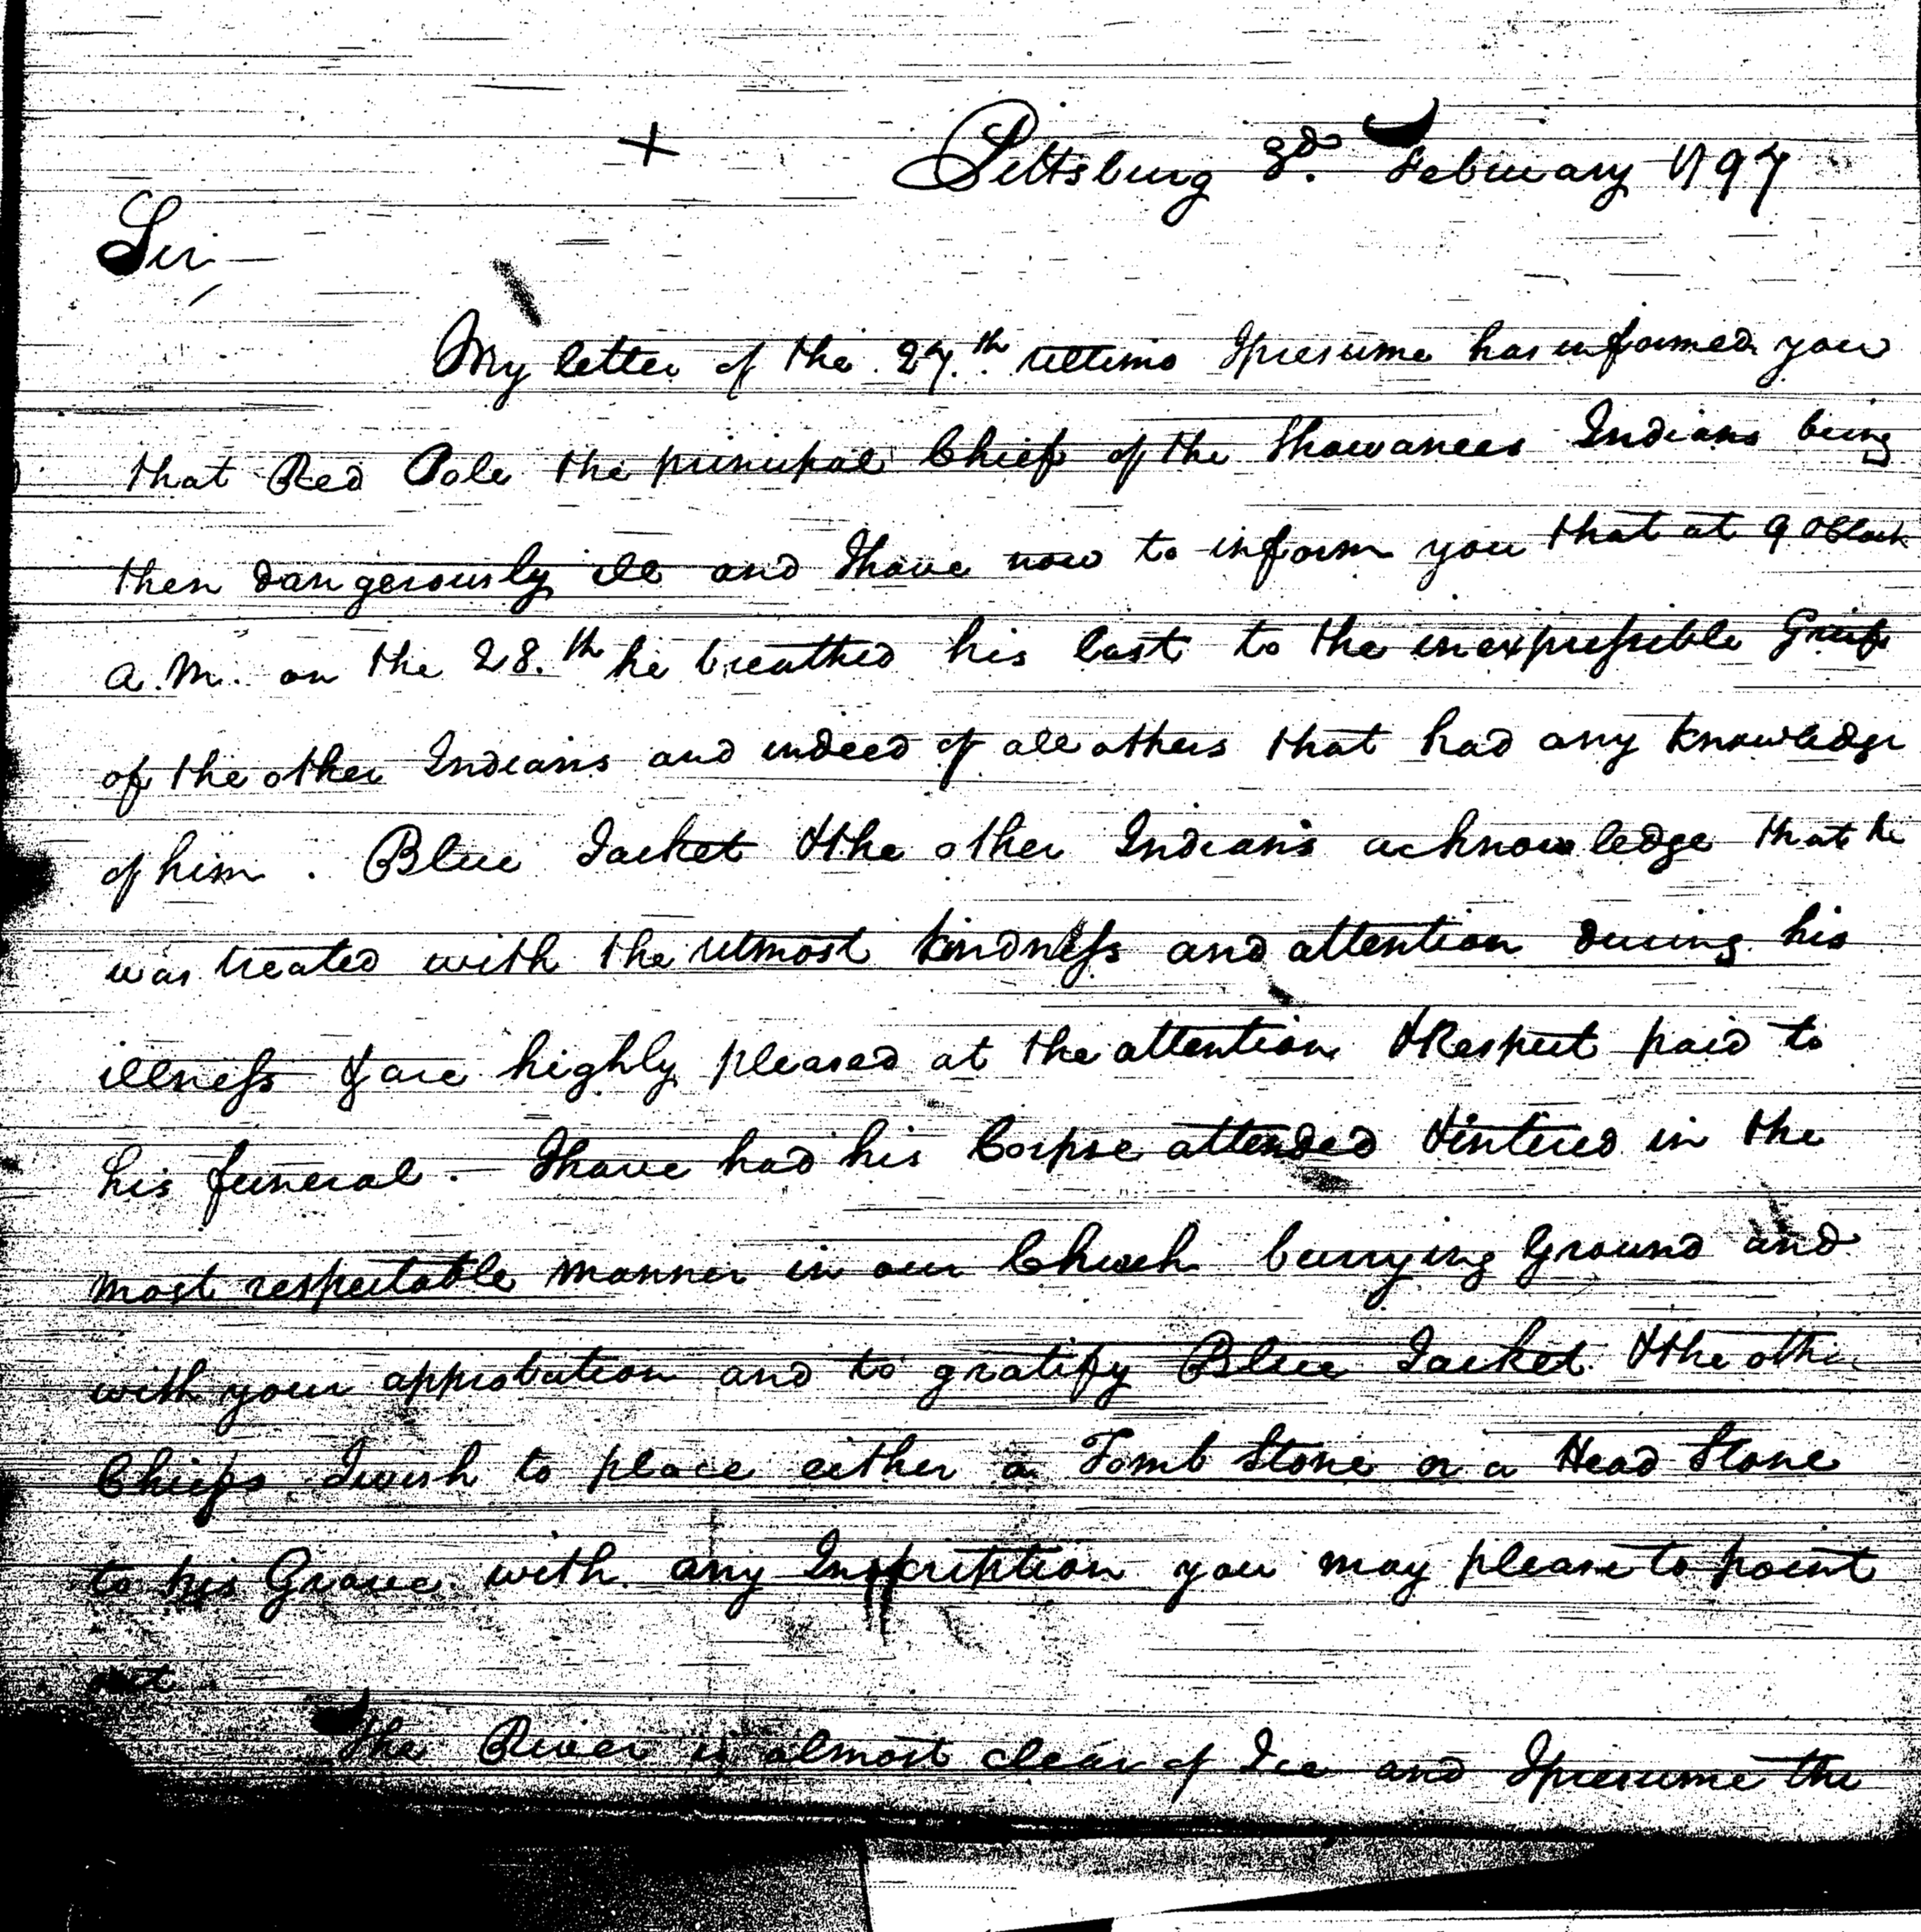 + Pittsburg 3d. February 1797
Sir —
My letter of the 27.th ultimo I presume has informed you
that Red Pole the principal Chief of the Shawanees Indians being
then dangerously ill and I have now to inform you that at 9 oClock
A.M. on the 28.th he breathed his last to the inexpressible Grief
of the other Indians and indeed of all others that had any knowledge
of him. Blue Jacket & the other Indians acknowledge that he
was treated with the utmost kindness and attention during his
illness & are highly pleased at the attention & Respect paid to
his funeral. — I have had his Corpse attended & intered in the
most respectable manner in our Church burrying Ground and
with your approbation and to gratify Blue Jacket & the other
Chiefs I wish to place either a Tomb Stone or a Head Stone
to his Grave with any Inscription you may please to point
out
The River is almost clear of Ice and I presume the